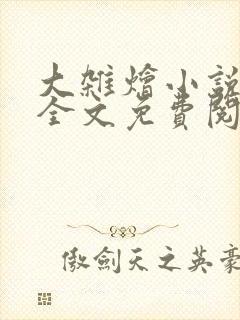 大雜燴小說
全文免費閱
傲劍天之英豪